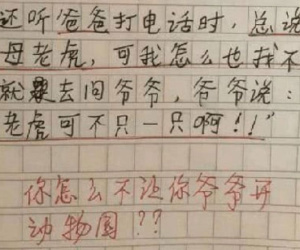 还听爸爸打电话时，总说
母老虎，可我怎么也找不
就去问爷爷，爷爷说：
老虎可不只一只啊！！”
你怎么不让你爷爷开
动物园？？